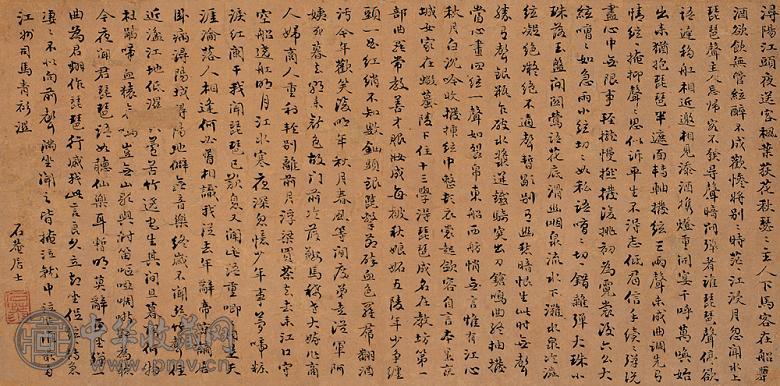 潯陽江頭夜送客楓葉荻花秋瑟〻主人下馬客在船舉
酒欲飲無管絃醉不成歡慘將別〻時茫〻江浸月忽聞水上
琵琶聲主人忘歸客不發尋聲暗問彈者誰琵琶聲停欲
語遲移船相近邀相見添酒攜燈重開宴千呼萬喚始
出來猶抱琵琶半遮面轉軸撥絃三兩聲未成曲調先有
情絃〻掩抑聲〻思似訴平生不得志低眉信手續〻彈說
盡心中無限事輕攏慢撚撥復挑初為霓裳後六么大
絃嘈〻如急雨小絃切〻如私語嘈〻切〻錯雜彈大珠小
珠落玉盤間關鶯語花底滑幽咽泉流水下灘水泉冷澀
絃凝絕凝絕不通聲暫歇別有幽愁暗恨生此時無聲
勝有聲銀瓶乍破水漿迸鐵騎突出刀鎗鳴曲終抽撥
當心畫四絃一聲如裂帛東船西舫悄無言惟有江心
秋月白沉吟收撥插絃中整頓衣裳起斂容自言本是京
城女家在蝦蟇陵下住十三學得琵琶成名在教坊第一
部曲罷常教善才服妝成每被秋娘妬五陵年少爭纏
頭一曲紅綃不知數鈿頭銀篦擊節碎血色羅裙翻酒
污今年歡笑復明年秋月春風等閒度弟走從軍阿
姨死暮去朝來顏色故門前冷落鞍馬稀老大嫁作商
人婦商人重利輕別離前月浮梁買茶去〻來江口守
空船遶船明月江水寒夜深忽憶少年事夢啼粧
淚紅闌干我聞琵琶已歎息又聞此語重唧〻同是天
涯淪落人相逢何必曾相識我從去年辭帝京謫居
臥病潯陽城潯陽地僻無音樂終歲不聞絲竹聲
近湓江地低濕 苦竹遶宅生其間旦暮聞何物
杜鵑啼血猿 豈無山歌與村笛嘔啞嘲哳難為聽
今夜聞君琵琶語如聽仙樂耳暫明莫辭更坐彈一
曲為君翻作琵琶行感我此言良久立卻坐促絃絃轉急
淒〻不似向前聲滿坐聞之皆掩泣就中泣下誰最多
江州司馬青衫濕
石菴居士
中华收藏网
www.pmcv.cn